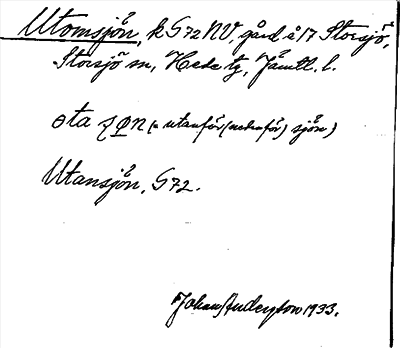 Utomsjön, k G72 NV, gård å 17 Storsjö,
Storsjö sn, Hede tg, Jämtl. l.
(= utanför (nedanför) sjön)
Utansjön, G72.
Johan Anderson 1933.